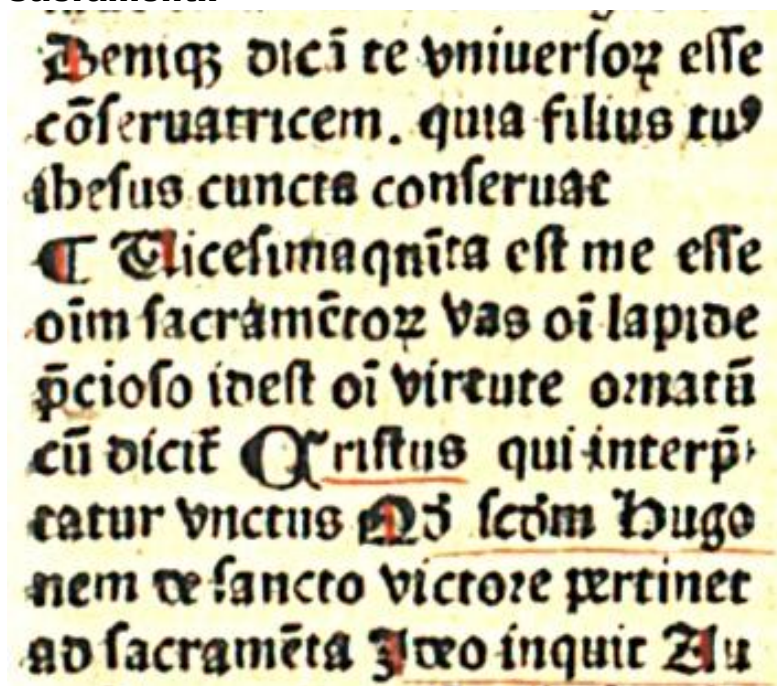 Deniqꝫ dicĩ te vniuerſoꝝ eſſe
cõſeruatricem. quia filius tuꝰ
iheſus cuncta conſeruat
¶ Viceſima qnĩta eſt me eſſe
oĩm ſacramẽtoꝝ vas oĩ lapide
p̃cioſo ideſt oĩ virtute ornatũ
cũ dicit᷑ Criſtus qui interp̃⸗
tatur vnctus Qđ ſcđm Hugo
nem de ſancto victore pertinet
ad ſacramẽta Ideo inquit Au